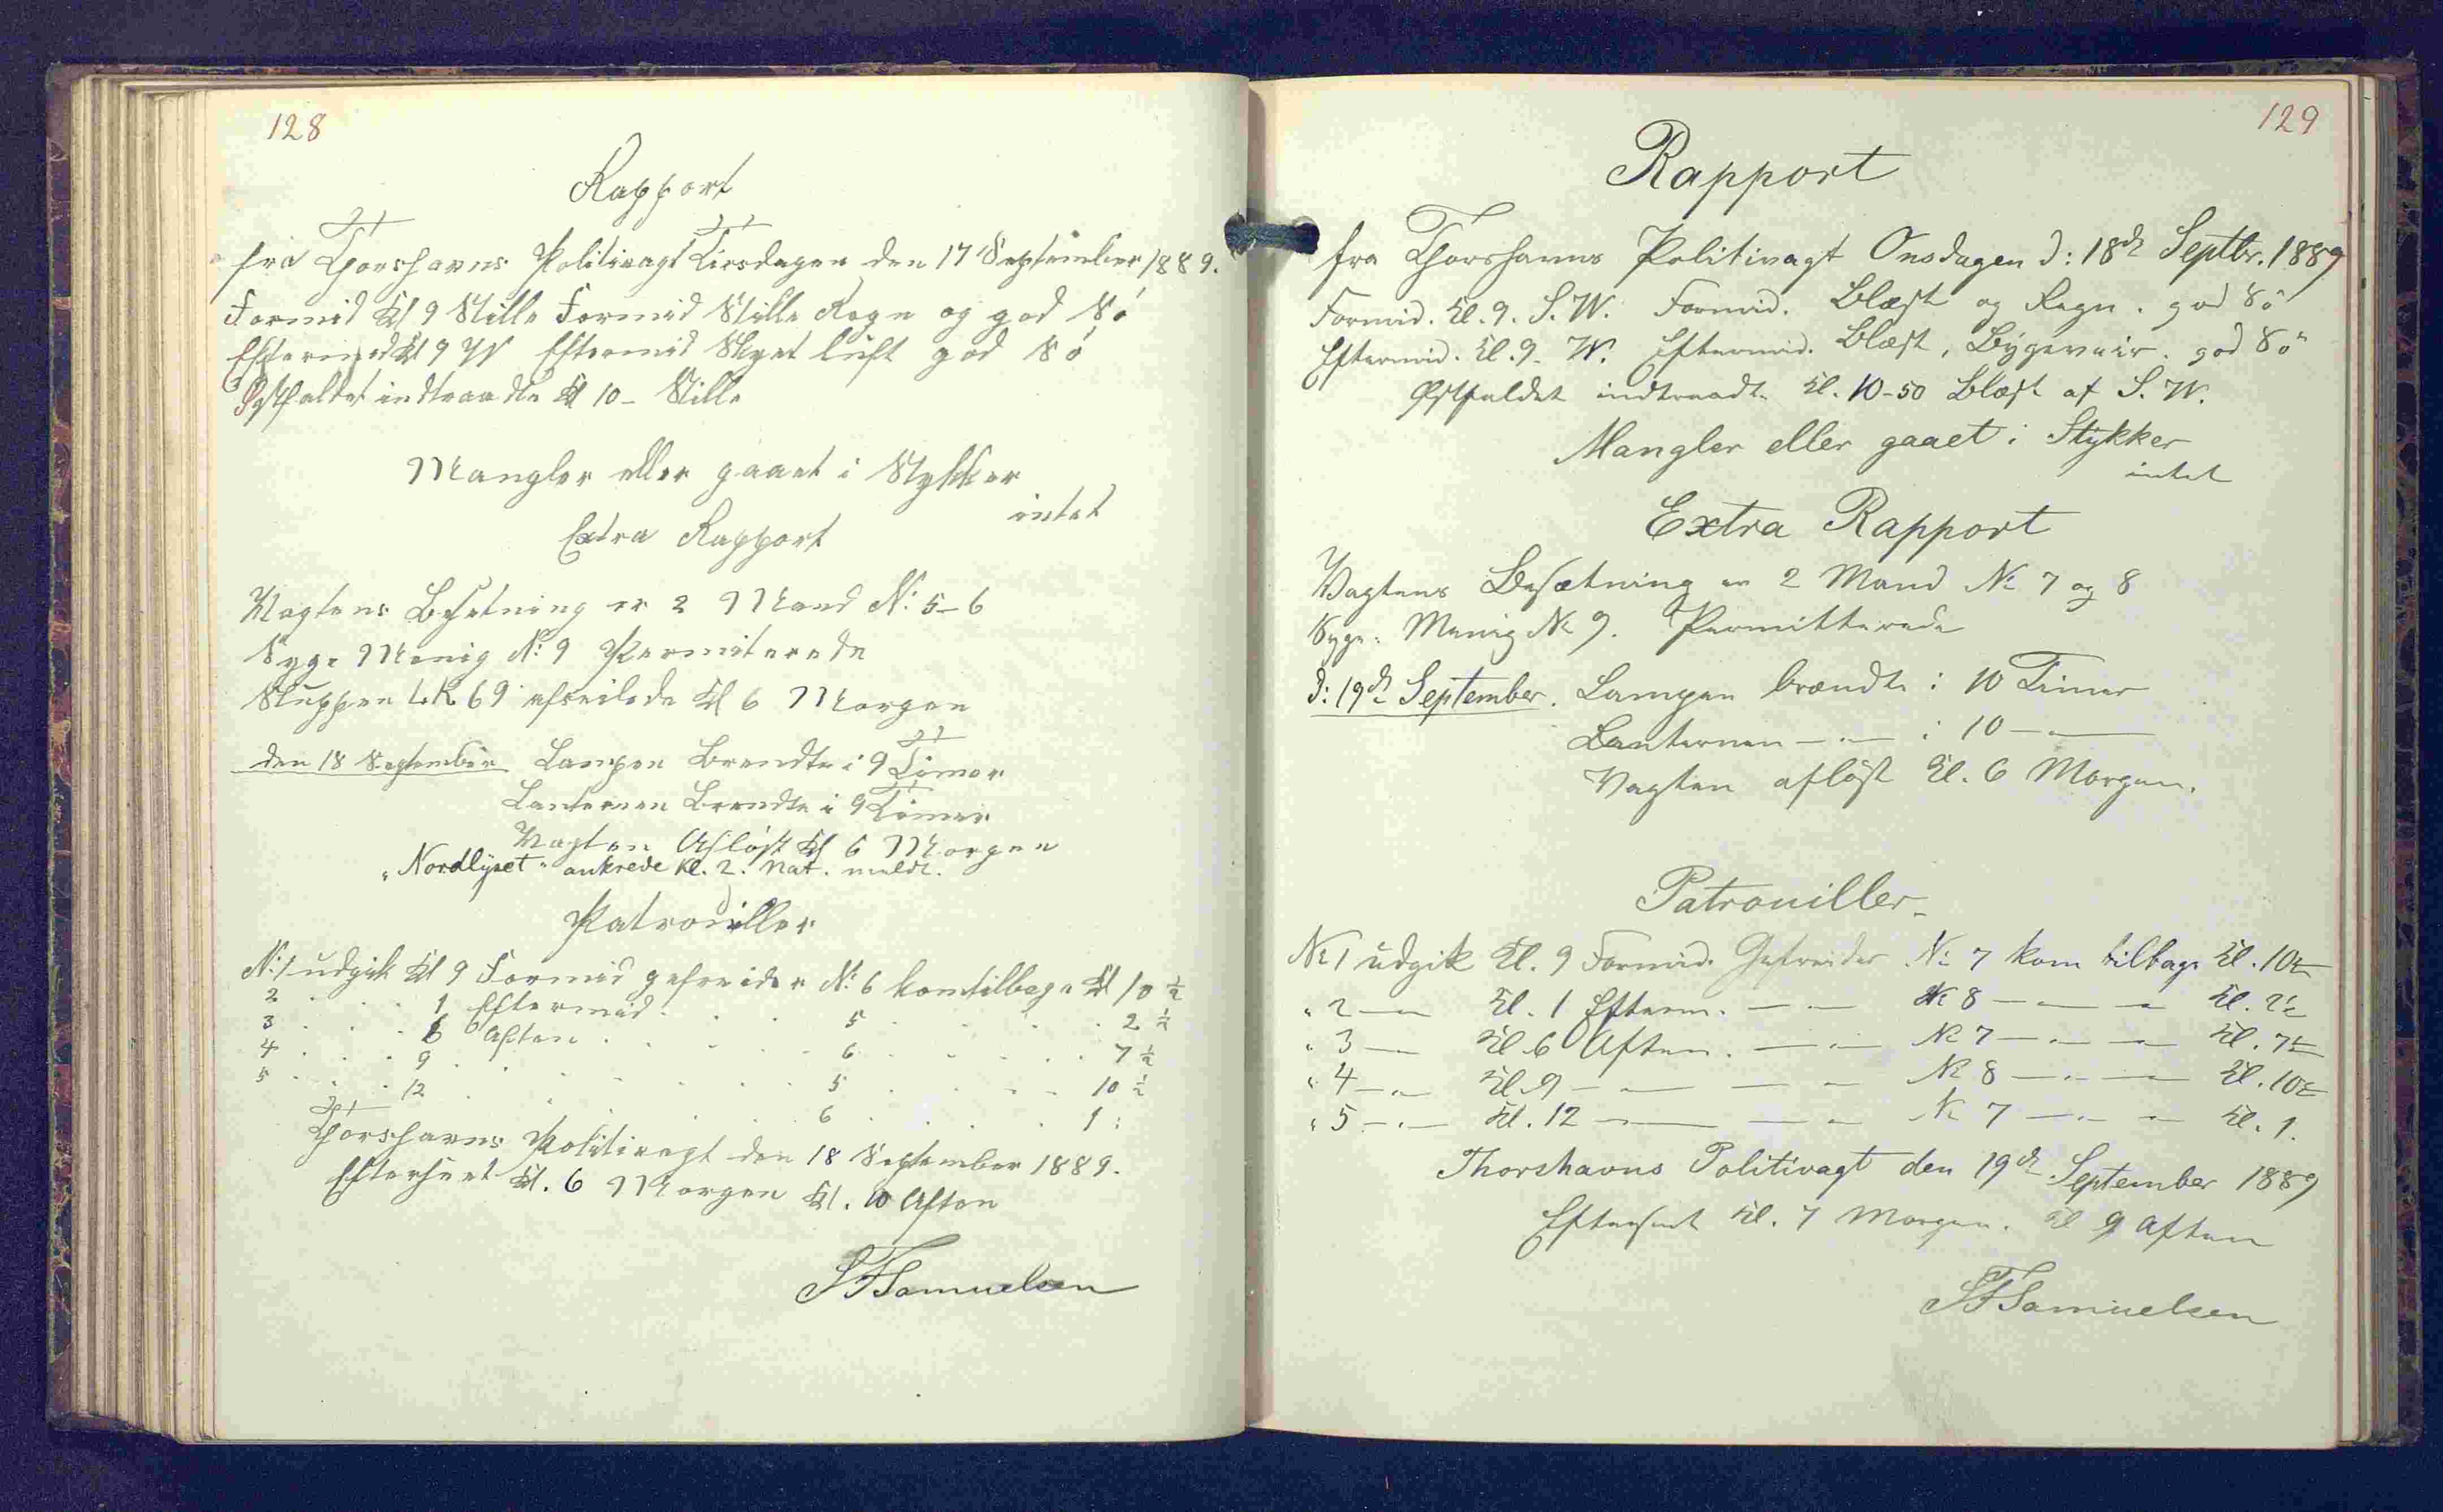 128
Rapport
fra Thorshavns Politivagt Tirsdagen den 17 September 1889.
Formid Kl 9 Stille Formid Stille Regn og god Sö
Eftermid Kl 9 W Eftermid Skyet luft god Sö
Østfaldet indtraadte Kl 10 - Stille
Mangler eller gaaet i Stykker
intet
Extra Rapport
Vagtens Besetning er 2 Mand No: 5-6
Syge Menig No: 9 Permiterede
Sluppen L.K. 69 afseilede Kl 6 Morgen
den 18 September Lampen Brendte i 9 Timer
Lanternen Brendte i 9 Timer
Vagten Aflöst Kl 6 Morgen
„Nordlyset" ankrede Kl. 2. Nat. meldt.
Patrouiller
No: 1 udgik Kl 9 Formid gefreider No: 6 kom tilbage Kl 10 ½
2 . . . 1 Eftermid . . . 5 . . . 2 ½
3 . . . 6 Aften . . . 6 . . . 7 ½
4 . . . 9 . . . 5 . . . 10 ½
5 . . . 12 . . . 6 . . . 1 :
Thorshavns Politivagt den 18 September 1889.
Efterseet Kl. 6 Morgen Kl. 10 Aften
SF Samuelsen
129
Rapport
fra Thorshavns Politivagt Onsdagen d: 18de Septbr. 1889
Formid. Kl. 9. S.W. Formid. Blæst og Regn. god Sö
Eftermid. Kl. 9. W. Eftermid. Blæst, Bygeveir. god Sö
Østfaldet indtraadte Kl. 10-50 Blæst af S.W.
Mangler eller gaaet i Stykker
intet
Extra Rapport
Vagtens Besætning er 2 Mand No 7 og 8
Syge: Menig No 9. Permitterede
d: 19de September. Lampen brændte i 10 Timer
Lanternen — „ — i 10 — „ —
Vagten aflöst Kl. 6 Morgen.
Patrouiller
No 1 udgik Kl. 9 Formid. Gefreider No 7 kom tilbage Kl. 10½
„ 2 — „ Kl. 1 Efterm. — „ — No 8 — „ — „ Kl. 2½
„ 3 — „ Kl. 6 Aften. — „ — No 7 — „ — „ Kl. 7½
„ 4 — „ Kl. 9 — „ — — „ No 8 — „ — „ Kl. 10½
„ 5 — „ — Kl. 12 — „ — — „ No 7 — „ — „ Kl. 1.
Thorshavns Politivagt den 19de September 1889
Efterseet Kl. 7 Morgen. Kl 9 Aften
SF Samuelsen